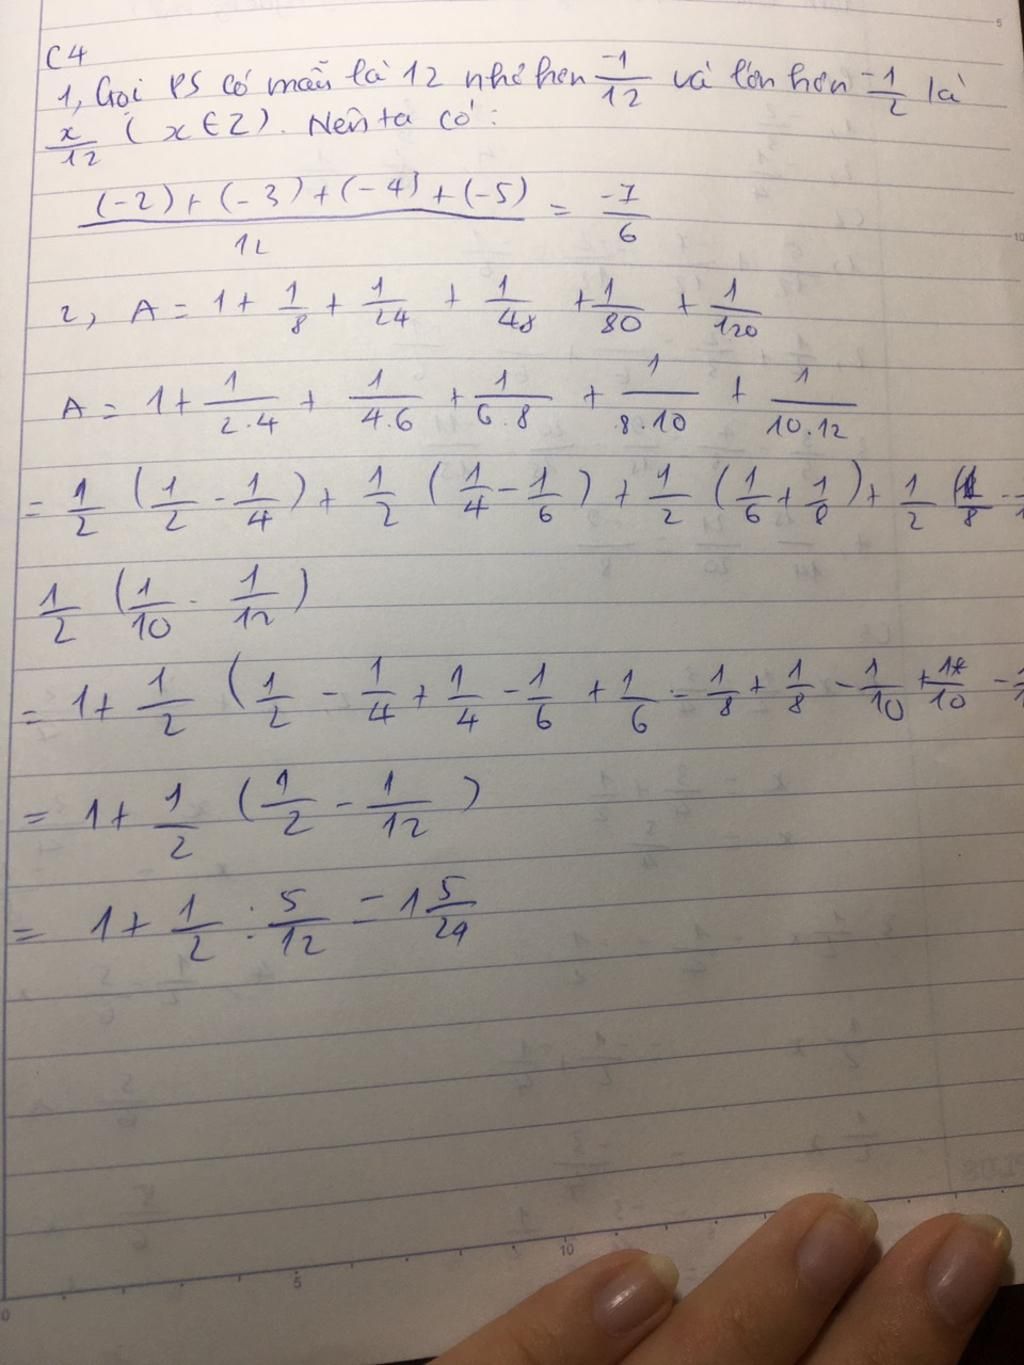 C4
1, Gọi PS có mẫu là 12 nhỏ hơn -1/12 và lớn hơn -1/2 là
x/12 (x ∈ Z). Nên ta có:
((-2) + (-3) + (-4) + (-5))/12 = -7/6
2, A = 1 + 1/8 + 1/24 + 1/48 + 1/80 + 1/120
A = 1 + 1/2.4 + 1/4.6 + 1/6.8 + 1/8.10 + 1/10.12
= 1/2 (1/2 - 1/4) + 1/2 (1/4 - 1/6) + 1/2 (1/6 + 1/8) + 1/2 (1/8 -
1/2 (1/10 - 1/12)
= 1 + 1/2 (1/2 - 1/4 + 1/4 - 1/6 + 1/6 - 1/8 + 1/8 - 1/10 + 1/10 -
= 1 + 1/2 (1/2 - 1/12)
= 1 + 1/2 : 5/12 = 1 5/24
5
10
0 5 10